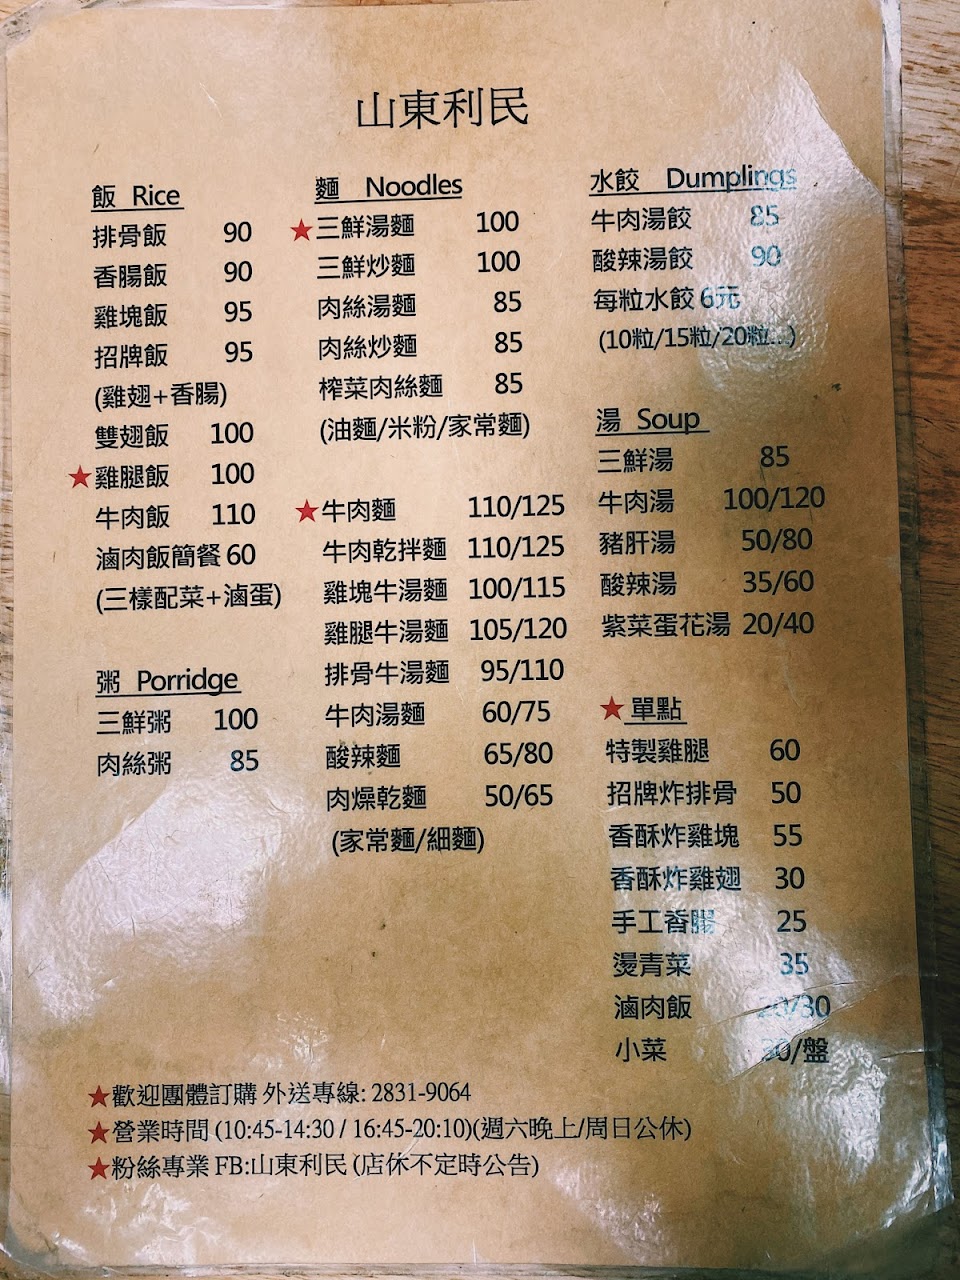 山東利民
飯 Rice
排骨飯 90
香腸飯 90
雞塊飯 95
招牌飯 95
(雞翅+香腸)
雙翅飯 100
★雞腿飯 100
牛肉飯 110
滷肉飯簡餐 60
(三樣配菜+滷蛋)
粥 Porridge
三鮮粥 100
肉絲粥 85
麵 Noodles
★三鮮湯麵 100
三鮮炒麵 100
肉絲湯麵 85
肉絲炒麵 85
榨菜肉絲麵 85
(油麵/米粉/家常麵)
★牛肉麵 110/125
牛肉乾拌麵 110/125
雞塊牛湯麵 100/115
雞腿牛湯麵 105/120
排骨牛湯麵 95/110
牛肉湯麵 60/75
酸辣麵 65/80
肉燥乾麵 50/65
(家常麵/細麵)
水餃 Dumplings
牛肉湯餃 85
酸辣湯餃 90
每粒水餃 6元
(10粒/15粒/20粒...)
湯 Soup
三鮮湯 85
牛肉湯 100/120
豬肝湯 50/80
酸辣湯 35/60
紫菜蛋花湯 20/40
★單點
特製雞腿 60
招牌炸排骨 50
香酥炸雞塊 55
香酥炸雞翅 30
手工香腸 25
燙青菜 35
滷肉飯 20/30
小菜 30/盤
★歡迎團體訂購 外送專線: 2831-9064
★營業時間 (10:45-14:30 / 16:45-20:10)(週六晚上/周日公休)
★粉絲專業 FB:山東利民 (店休不定時公告)